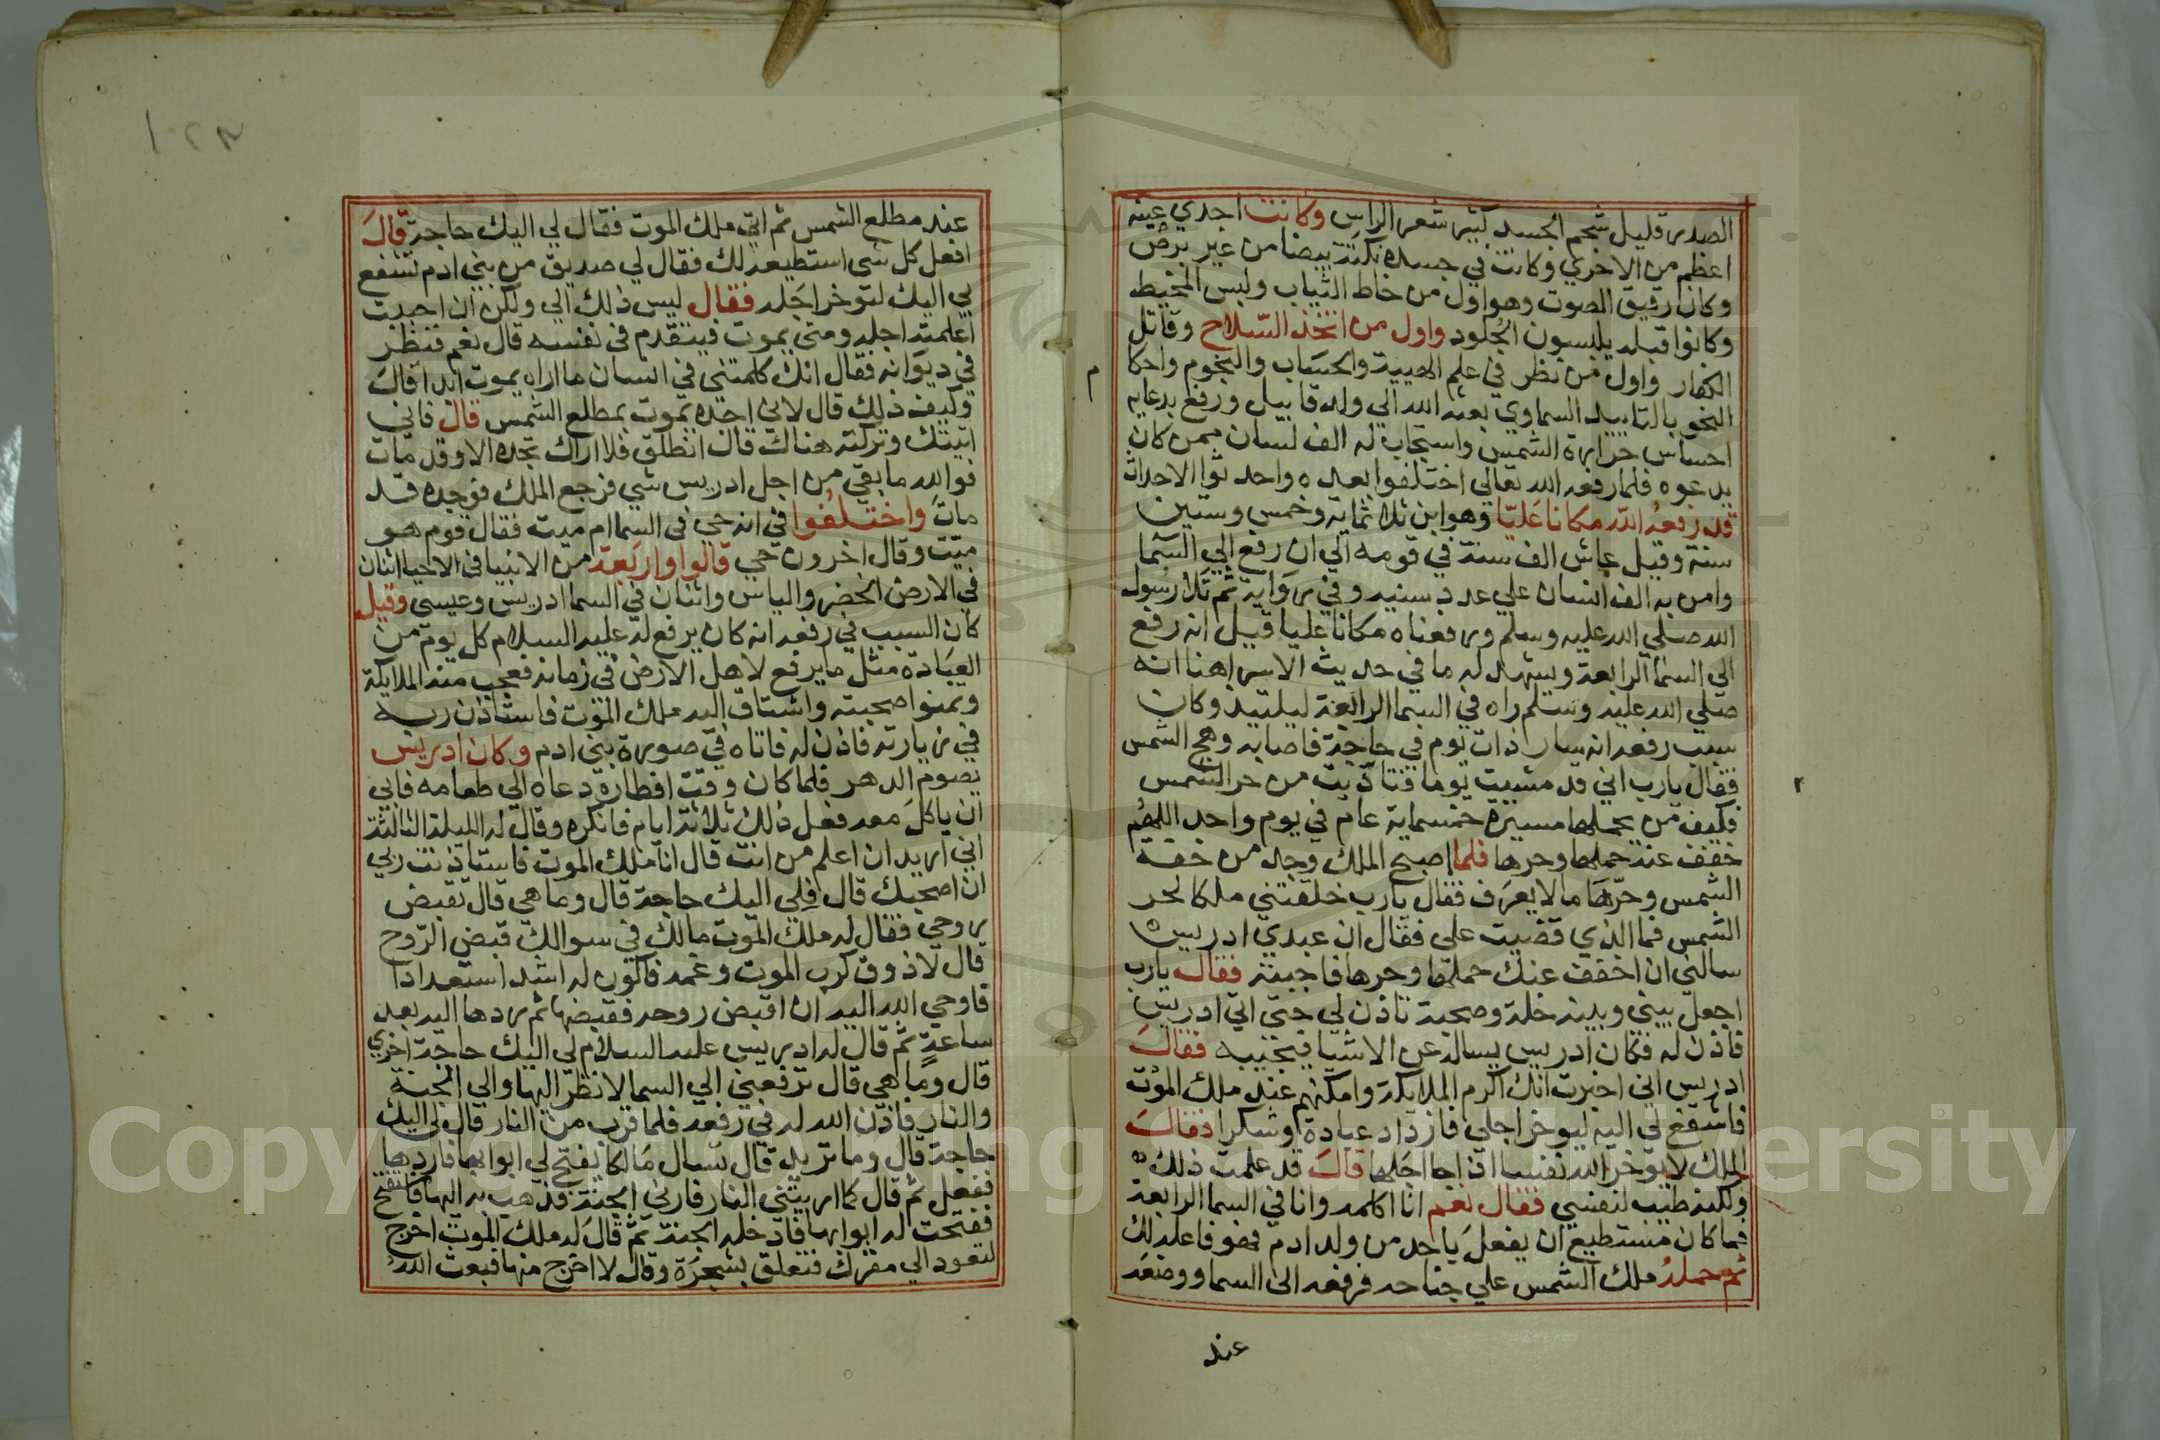 الصدر قليل شحم الجسد كثير شعر الراس وكانت احدي عينيه
اعظم من الاخري وكانت في جسده نكتة بيضا من غير برص
وكان رقيق الصوت وهو اول من خاط الثياب ولبس المخيط
وكانوا قبله يلبسون الجلود واول من اتخذ السلاح وقاتل
الكفار واول من نظر في علم الهيية والحساب والنجوم واحكا
م
النحو بالتاييد السماوي بعثه الله الي ولد قابيل ورفع بدعايه
احساس حرارة الشمس واستجاب له الف انسان ممن كان
يدعوه فلما رفعه الله تعالي اختلفوا بعده واحدثوا الاحداث
قد رفعه الله مكانا عليا وهو ابن ثلاثماية وخمس وستين
سنة وقيل عاش الف سنة في قومه الي ان رفع الي السما
وامن به الف انسان علي عدد سنيه وفي رواية ثم تلا رسول
الله صلي الله عليه وسلم ورفعناه مكانا عليا قيل انه رفع
الي السما الرابعة ويشهد له ما في حديث الاسراهنا انه
صلي الله عليه وسلم راه في السما الرابعة ليلتيذ وكان
سبب رفعه انه سار ذات يوم في حاجة فاصابه وهج الشمس
فقال يارب اني قد مشيت يوما فتاذيت من حر الشمس
فكيف من يحملها مسيرة خمسماية عام في يوم واحد اللهم
خفف عنه حملها وحرها فلما اصبح الملك وجد من خفة
الشمس وحرها ما لا يعرف فقال يارب خلقتني ملكا لحر
الشمس فما الذي قضيت علي فقال ان عبدي ادريس
سالني ان اخفف عنك حملها وحرها فاجبته فقال يارب
اجعل بيني وبينه خلة وصحبة تاذن لي حتي اتي ادريس
فاذن له فكان ادريس يساله عن الاشيا فيجيبه فقال
ادريس اني اخبرت انك اكرم الملايكة وامكنهم عند ملك الموت
فاشفع لي اليه ليوخر اجلي فازداد عبادة وشكرا فقال
الملك لا يوخر الله نفسا اذا جا اجلها قال قد علمت ذلك
ولكنه طيب لنفسي فقال نعم انا اكلمه وانا في السما الرابعة
فما كان مستطيع ان يفعل باحد من ولد ادم فهو فاعله لك
ثم حمله ملك الشمس علي جناحه فرفعه الي السما ووضعه
عند
عند مطلع الشمس ثم اتي ملك الموت فقال لي اليك حاجة قال
افعل كل شي استطيعه لك فقال لي صديق من بني ادم تشفع
بي اليك لتوخر اجله فقال ليس ذلك الي ولكن ان احببت
اعلمته اجله ومتي يموت فيتقدم في نفسه قال نعم فنظر
في ديوانه فقال انك كلمتني في انسان ما اراه يموت ابدا قال
وكيف ذلك قال لاني اجده يموت بمطلع الشمس قال فاني
اتيتك وتركته هناك قال انطلق فلا اراك تجده الا وقد مات
فوالله ما بقي من اجل ادريس شي فرجع الملك فوجده قد
مات واختلفوا في انه حي في السما ام ميت فقال قوم هو
ميت وقال اخرون حي قالوا واربعة من الانبيا في الاحيا اثنان
في الارض الخضر والياس واثنان في السما ادريس وعيسي وقيل
كان السبب في رفعه انه كان يرفع له عليه السلام كل يوم من
العبادة مثل ما يرفع لاهل الارض في زمانه فعجب منه الملايكة
وتمنوا صحبته واشتاق اليه ملك الموت فاستاذن ربه
في زيارته فاذن له فاتاه في صورة بني ادم وكان ادريس
يصوم الدهر فلما كان وقت افطاره دعاه الي طعامه فابي
ان ياكل معه ففعل ذلك ثلاثة ايام فانكره وقال له الليلة الثالثة
اني اريد ان اعلم من انت قال انا ملك الموت فاستاذنت ربي
ان اصحبك قال فلي اليك حاجة قال وما هي قال تقبض
روحي فقال له ملك الموت مالك في سوالك قبض الروح
قال لاذوق كرب الموت وغمه فاكون له اشد استعدادا
فاوحي الله اليه ان اقبض روحه فقبضها ثم ردها اليه بعد
ساعة ثم قال له ادريس عليه السلام لي اليك حاجة اخري
قال وما هي قال ترفعني الي السما لانظر اليها والي الجنة
والنار فاذن الله له في رفعه فلما قرب من النار قال لي اليك
حاجة قال وما تريد قال تسال مالكا يفتح لي ابوابها فاردها
ففعل ثم قال كما اريتني النار فارني الجنة فذهب به اليها فاستفتح
ففتحت له ابوابها فادخله الجنة ثم قال له ملك الموت اخرج
لتعود الي مقرك فتعلق بشجرة وقال لا اخرج منها فبعث الله